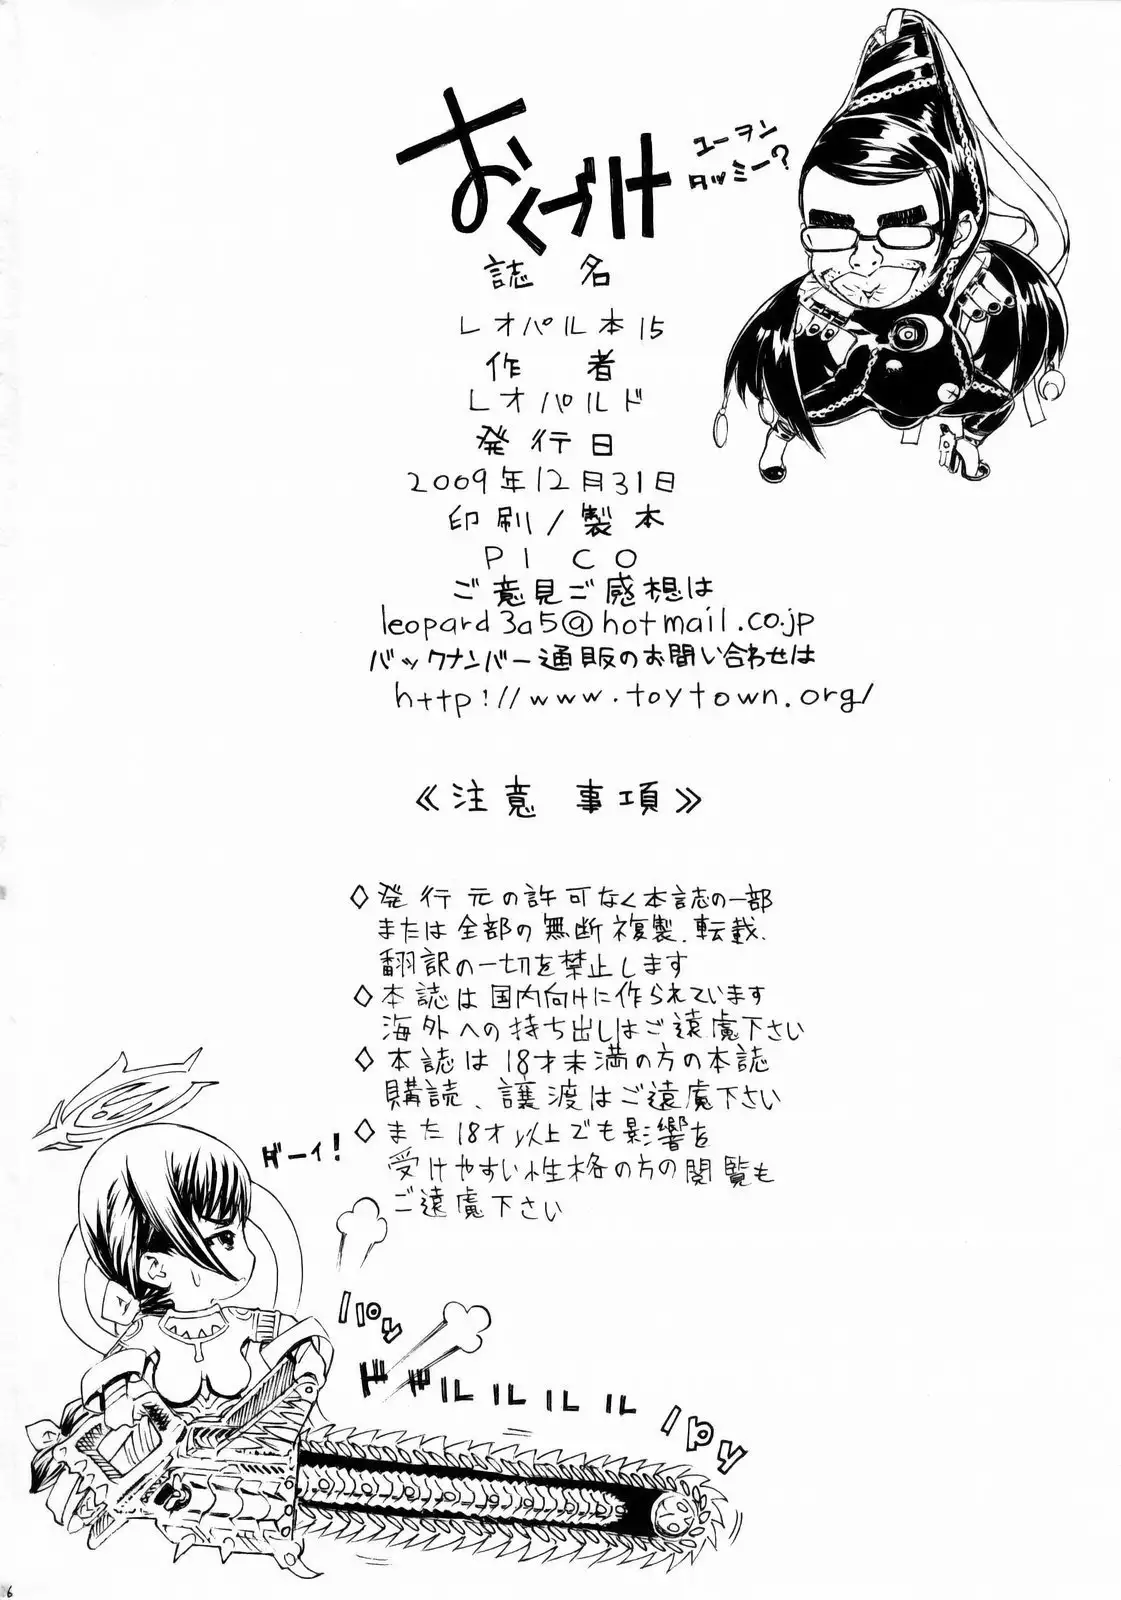 おくづけ
ユーヲン
タッミー?
誌名
レオパル本15
作者
レオパルド
発行日
2009年12月31日
印刷/製本
PICO
ご意見ご感想は
leopard3a5@hotmail.co.jp
バックナンバー通販のお問い合わせは
http://www.toytown.org/
《注意 事項》
◇発行元の許可なく本誌の一部
または全部の無断複製、転載、
翻訳の一切を禁止します
◇本誌は国内向けに作られています
海外への持ち出しはご遠慮下さい
◇本誌は18才未満の方の本誌
購読、譲渡はご遠慮下さい
◇また18才以上でも影響を
受けやすい性格の方の閲覧も
ご遠慮下さい
ダーイ!
パパッ
ドドルルルルル
パパッ
6